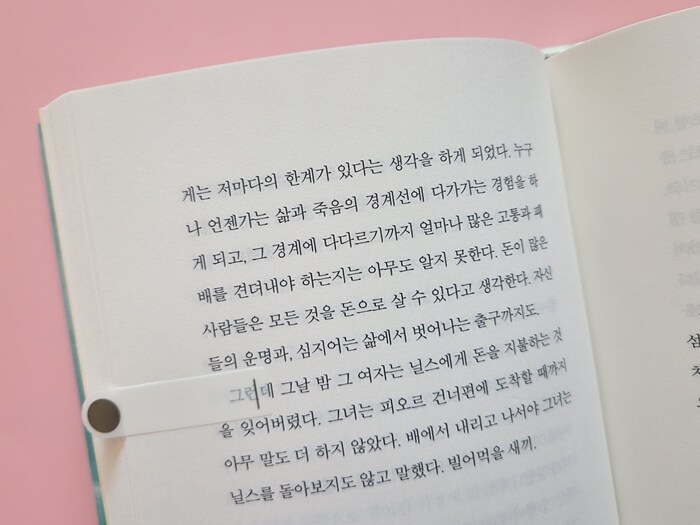 게는 저마다의 한계가 있다는 생각을 하게 되었다. 누구
나 언젠가는 삶과 죽음의 경계선에 다가가는 경험을 하
게 되고, 그 경계에 다다르기까지 얼마나 많은 고통과 패
배를 견뎌내야 하는지는 아무도 알지 못한다. 돈이 많은
사람들은 모든 것을 돈으로 살 수 있다고 생각한다. 자신
들의 운명과, 심지어는 삶에서 벗어나는 출구까지도.
그런데 그날 밤 그 여자는 닐스에게 돈을 지불하는 것
을 잊어버렸다. 그녀는 피오르 건너편에 도착할 때까지
아무 말도 더 하지 않았다. 배에서 내리고 나서야 그녀는
닐스를 돌아보지도 않고 말했다. 빌어먹을 새끼.
섬